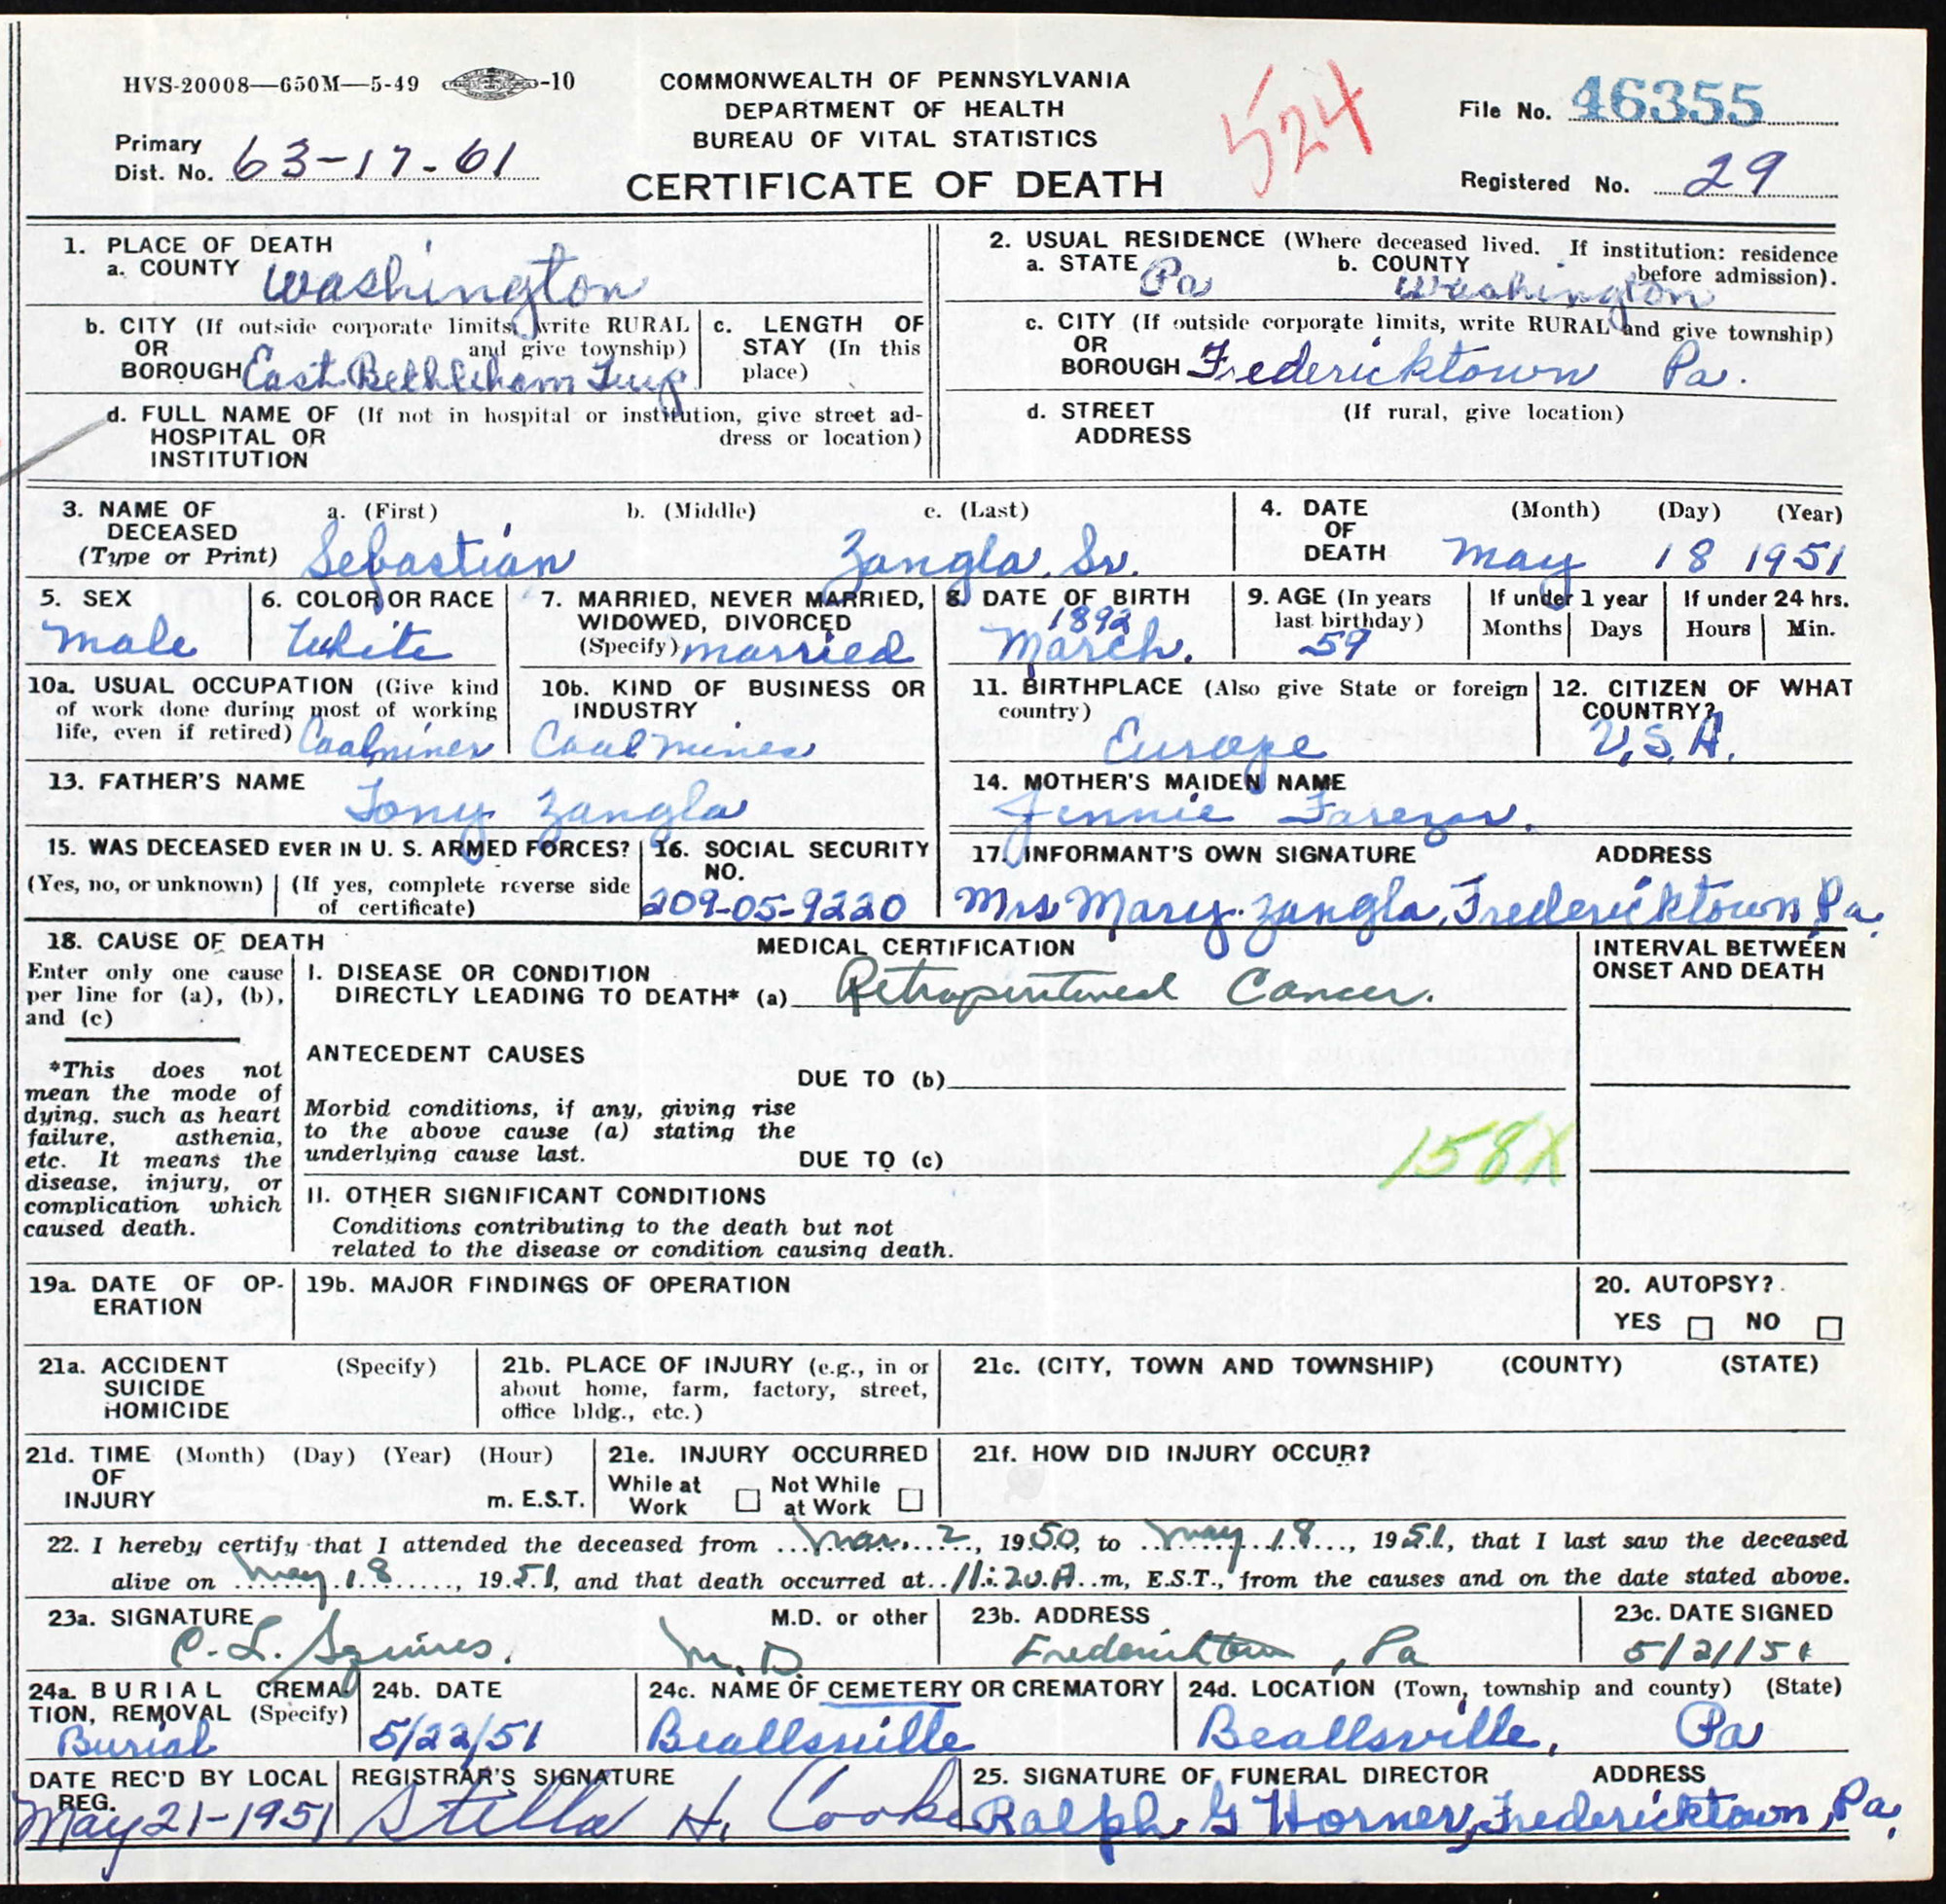 HVS-20008—650M—5-49 -10
COMMONWEALTH OF PENNSYLVANIA
DEPARTMENT OF HEALTH
BUREAU OF VITAL STATISTICS
CERTIFICATE OF DEATH
524
File No. 46355
Primary
Dist. No. 63-17-61
Registered No. 29
1. PLACE OF DEATH
a. COUNTY Washington
b. CITY (If outside corporate limits, write RURAL
OR and give township)
BOROUGH East Bethlehem Twp
c. LENGTH OF
STAY (In this
place)
d. FULL NAME OF (If not in hospital or institution, give street ad-
HOSPITAL OR dress or location)
INSTITUTION
2. USUAL RESIDENCE (Where deceased lived. If institution: residence
before admission).
a. STATE Pa b. COUNTY Washington
c. CITY (If outside corporate limits, write RURAL and give township)
OR
BOROUGH Fredericktown Pa.
d. STREET (If rural, give location)
ADDRESS
3. NAME OF a. (First) b. (Middle) c. (Last)
DECEASED
(Type or Print) Sebastian Zangla. Sr.
4. DATE (Month) (Day) (Year)
OF
DEATH May 18 1951
5. SEX
Male
6. COLOR OR RACE
White
7. MARRIED, NEVER MARRIED,
WIDOWED, DIVORCED
(Specify) married
8. DATE OF BIRTH
1892
March.
9. AGE (In years
last birthday)
59
If under 1 year
Months Days
If under 24 hrs.
Hours Min.
10a. USUAL OCCUPATION (Give kind
of work done during most of working
life, even if retired) Coalminer
10b. KIND OF BUSINESS OR
INDUSTRY
Coal Mines
11. BIRTHPLACE (Also give State or foreign
country)
Europe
12. CITIZEN OF WHAT
COUNTRY?
U.S.A.
13. FATHER'S NAME
Tony Zangla
14. MOTHER'S MAIDEN NAME
Jennie
15. WAS DECEASED EVER IN U. S. ARMED FORCES?
(Yes, no, or unknown) (If yes, complete reverse side
of certificate)
16. SOCIAL SECURITY
NO.
209-05-9220
17. INFORMANT'S OWN SIGNATURE ADDRESS
Mrs Mary Zangla, Fredericktown, Pa.
18. CAUSE OF DEATH
Enter only one cause
per line for (a), (b),
and (c)
*This does not
mean the mode of
dying, such as heart
failure, asthenia,
etc. It means the
disease, injury, or
complication which
caused death.
MEDICAL CERTIFICATION
I. DISEASE OR CONDITION
DIRECTLY LEADING TO DEATH* (a) Retroperitoneal Cancer.
ANTECEDENT CAUSES
DUE TO (b)
Morbid conditions, if any, giving rise
to the above cause (a) stating the
underlying cause last.
DUE TO (c)
158X
II. OTHER SIGNIFICANT CONDITIONS
Conditions contributing to the death but not
related to the disease or condition causing death.
INTERVAL BETWEEN
ONSET AND DEATH
19a. DATE OF OP-
ERATION
19b. MAJOR FINDINGS OF OPERATION
20. AUTOPSY?
YES NO
21a. ACCIDENT (Specify)
SUICIDE
HOMICIDE
21b. PLACE OF INJURY (e.g., in or
about home, farm, factory, street,
office bldg., etc.)
21c. (CITY, TOWN AND TOWNSHIP) (COUNTY) (STATE)
21d. TIME (Month) (Day) (Year) (Hour)
OF
INJURY m. E.S.T.
21e. INJURY OCCURRED
While at Not While
Work at Work
21f. HOW DID INJURY OCCUR?
22. I hereby certify that I attended the deceased from Mar. 2, 1950, to May 18, 1951, that I last saw the deceased
alive on May 18, 1951, and that death occurred at 11:20 A m, E.S.T., from the causes and on the date stated above.
23a. SIGNATURE M.D. or other
C. L. Squires. M.D.
23b. ADDRESS
Fredericktown, Pa
23c. DATE SIGNED
5/21/51
24a. BURIAL CREMA
TION, REMOVAL (Specify)
Burial
24b. DATE
5/22/51
24c. NAME OF CEMETERY OR CREMATORY
Beallsville
24d. LOCATION (Town, township and county) (State)
Beallsville, Pa
DATE REC'D BY LOCAL
REG.
May 21-1951
REGISTRAR'S SIGNATURE
Stella H. Cooke
25. SIGNATURE OF FUNERAL DIRECTOR ADDRESS
Ralph G Horner, Fredericktown, Pa.